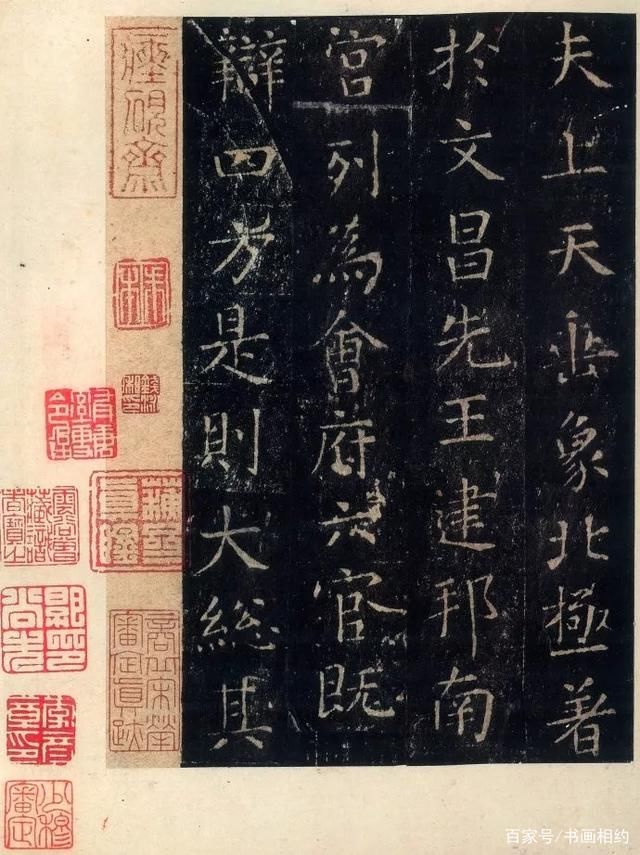 夫上天垂象北極著
於文昌先王建邦南
宮列為會府六官既
辯四方是則大總其
百家号/书画相约